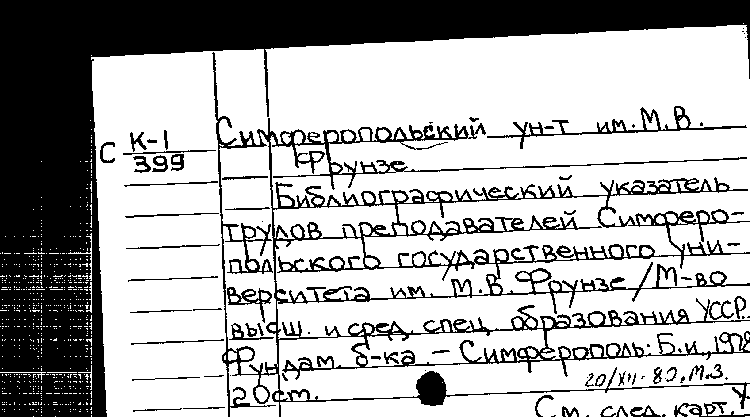 С К-1
399
Симферопольский ун-т им. М.В.
Фрунзе.
Библиографический указатель
трудов преподавателей Симферо-
польского государственного уни-
верситета им. М.В. Фрунзе / М-во
высш. и сред. спец. образования УССР.
Фундам. б-ка. – Симферополь: Б.и., 1978
20 ст.
20/XII-80. М.З.
См. след. карт.